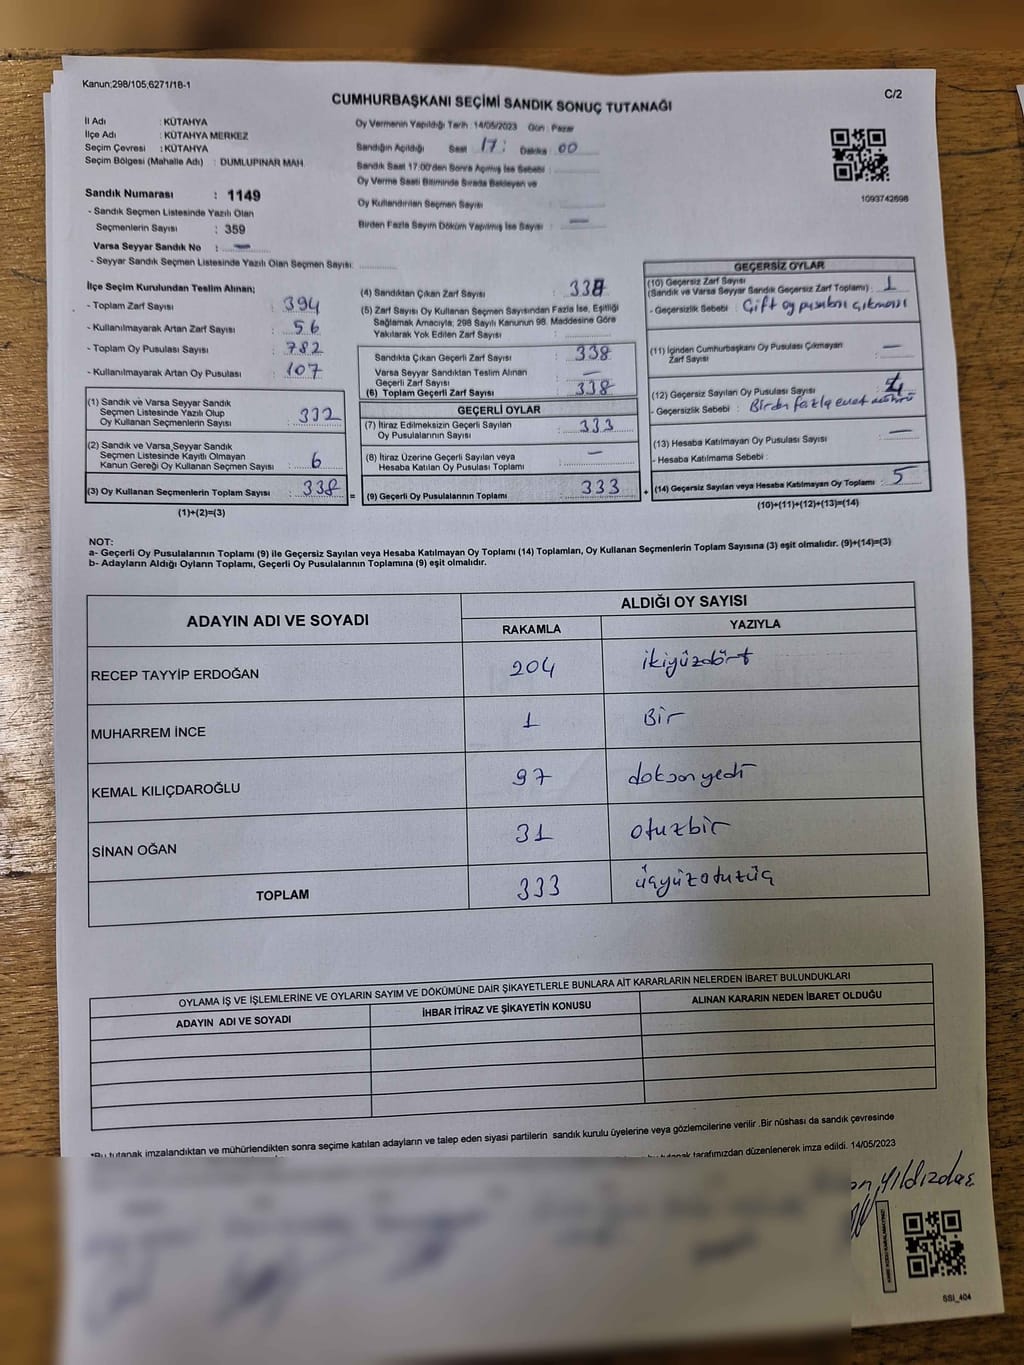 Kanun;298/105;6271/18-1
C/2
CUMHURBAŞKANI SEÇİMİ SANDIK SONUÇ TUTANAĞI
İl Adı : KÜTAHYA
İlçe Adı : KÜTAHYA MERKEZ
Seçim Çevresi : KÜTAHYA
Seçim Bölgesi (Mahalle Adı) : DUMLUPINAR MAH.
Sandık Numarası : 1149
- Sandık Seçmen Listesinde Yazılı Olan
Seçmenlerin Sayısı : 359
Varsa Seyyar Sandık No : —
- Seyyar Sandık Seçmen Listesinde Yazılı Olan Seçmen Sayısı:
Oy Vermenin Yapıldığı Tarih : 14/05/2023 Gün : Pazar
Sandığın Açıldığı Saat 17: Dakika 00
Sandık Saat 17:00'den Sonra Açılmış İse Sebebi :
Oy Verme Saati Bitiminde Sırada Bekleyen ve
Oy Kullandırılan Seçmen Sayısı :
Birden Fazla Sayım Döküm Yapılmış İse Sayısı : —
1093742698
İlçe Seçim Kurulundan Teslim Alınan;
- Toplam Zarf Sayısı : 394
- Kullanılmayarak Artan Zarf Sayısı : 56
- Toplam Oy Pusulası Sayısı : 782
- Kullanılmayarak Artan Oy Pusulası : 107
(1) Sandık ve Varsa Seyyar Sandık
Seçmen Listesinde Yazılı Olup
Oy Kullanan Seçmenlerin Sayısı : 332
(2) Sandık ve Varsa Seyyar Sandık
Seçmen Listesinde Kayıtlı Olmayan
Kanun Gereği Oy Kullanan Seçmen Sayısı : 6
(3) Oy Kullanan Seçmenlerin Toplam Sayısı : 338 =
(1)+(2)=(3)
(4) Sandıktan Çıkan Zarf Sayısı : 338
(5) Zarf Sayısı Oy Kullanan Seçmen Sayısından Fazla İse, Eşitliği
Sağlamak Amacıyla; 298 Sayılı Kanunun 98. Maddesine Göre
Yakılarak Yok Edilen Zarf Sayısı :
Sandıkta Çıkan Geçerli Zarf Sayısı : 338
Varsa Seyyar Sandıktan Teslim Alınan
Geçerli Zarf Sayısı : —
(6) Toplam Geçerli Zarf Sayısı : 338
GEÇERLİ OYLAR
(7) İtiraz Edilmeksizin Geçerli Sayılan
Oy Pusulalarının Sayısı : 333
(8) İtiraz Üzerine Geçerli Sayılan veya
Hesaba Katılan Oy Pusulası Toplamı : —
(9) Geçerli Oy Pusulalarının Toplamı : 333 +
GEÇERSİZ OYLAR
(10) Geçersiz Zarf Sayısı
(Sandık ve Varsa Seyyar Sandık Geçersiz Zarf Toplamı) : 1
- Geçersizlik Sebebi : Çift oy pusulası çıkması
(11) İçinden Cumhurbaşkanı Oy Pusulası Çıkmayan
Zarf Sayısı : —
(12) Geçersiz Sayılan Oy Pusulası Sayısı : 4
- Geçersizlik Sebebi : Birden fazla evet mührü
(13) Hesaba Katılmayan Oy Pusulası Sayısı : —
- Hesaba Katılmama Sebebi :
(14) Geçersiz Sayılan veya Hesaba Katılmayan Oy Toplamı : 5
(10)+(11)+(12)+(13)=(14)
NOT:
a- Geçerli Oy Pusulalarının Toplamı (9) ile Geçersiz Sayılan veya Hesaba Katılmayan Oy Toplamı (14) Toplamları, Oy Kullanan Seçmenlerin Toplam Sayısına (3) eşit olmalıdır. (9)+(14)=(3)
b- Adayların Aldığı Oyların Toplamı, Geçerli Oy Pusulalarının Toplamına (9) eşit olmalıdır.
ADAYIN ADI VE SOYADI
ALDIĞI OY SAYISI
RAKAMLA YAZIYLA
RECEP TAYYİP ERDOĞAN 204 ikiyüzdört
MUHARREM İNCE 1 Bir
KEMAL KILIÇDAROĞLU 97 doksanyedi
SİNAN OĞAN 31 otuzbir
TOPLAM 333 üçyüzotuzüç
OYLAMA İŞ VE İŞLEMLERİNE VE OYLARIN SAYIM VE DÖKÜMÜNE DAİR ŞİKAYETLERLE BUNLARA AİT KARARLARIN NELERDEN İBARET BULUNDUKLARI
ADAYIN ADI VE SOYADI İHBAR İTİRAZ VE ŞİKAYETİN KONUSU ALINAN KARARIN NEDEN İBARET OLDUĞU
*Bu tutanak imzalandıktan ve mühürlendikten sonra seçime katılan adayların ve talep eden siyasi partilerin sandık kurulu üyelerine veya gözlemcilerine verilir .Bir nüshası da sandık çevresinde
tutanak tarafımızdan düzenlenerek imza edildi. 14/05/2023
Yıldızdaş
SSI_404